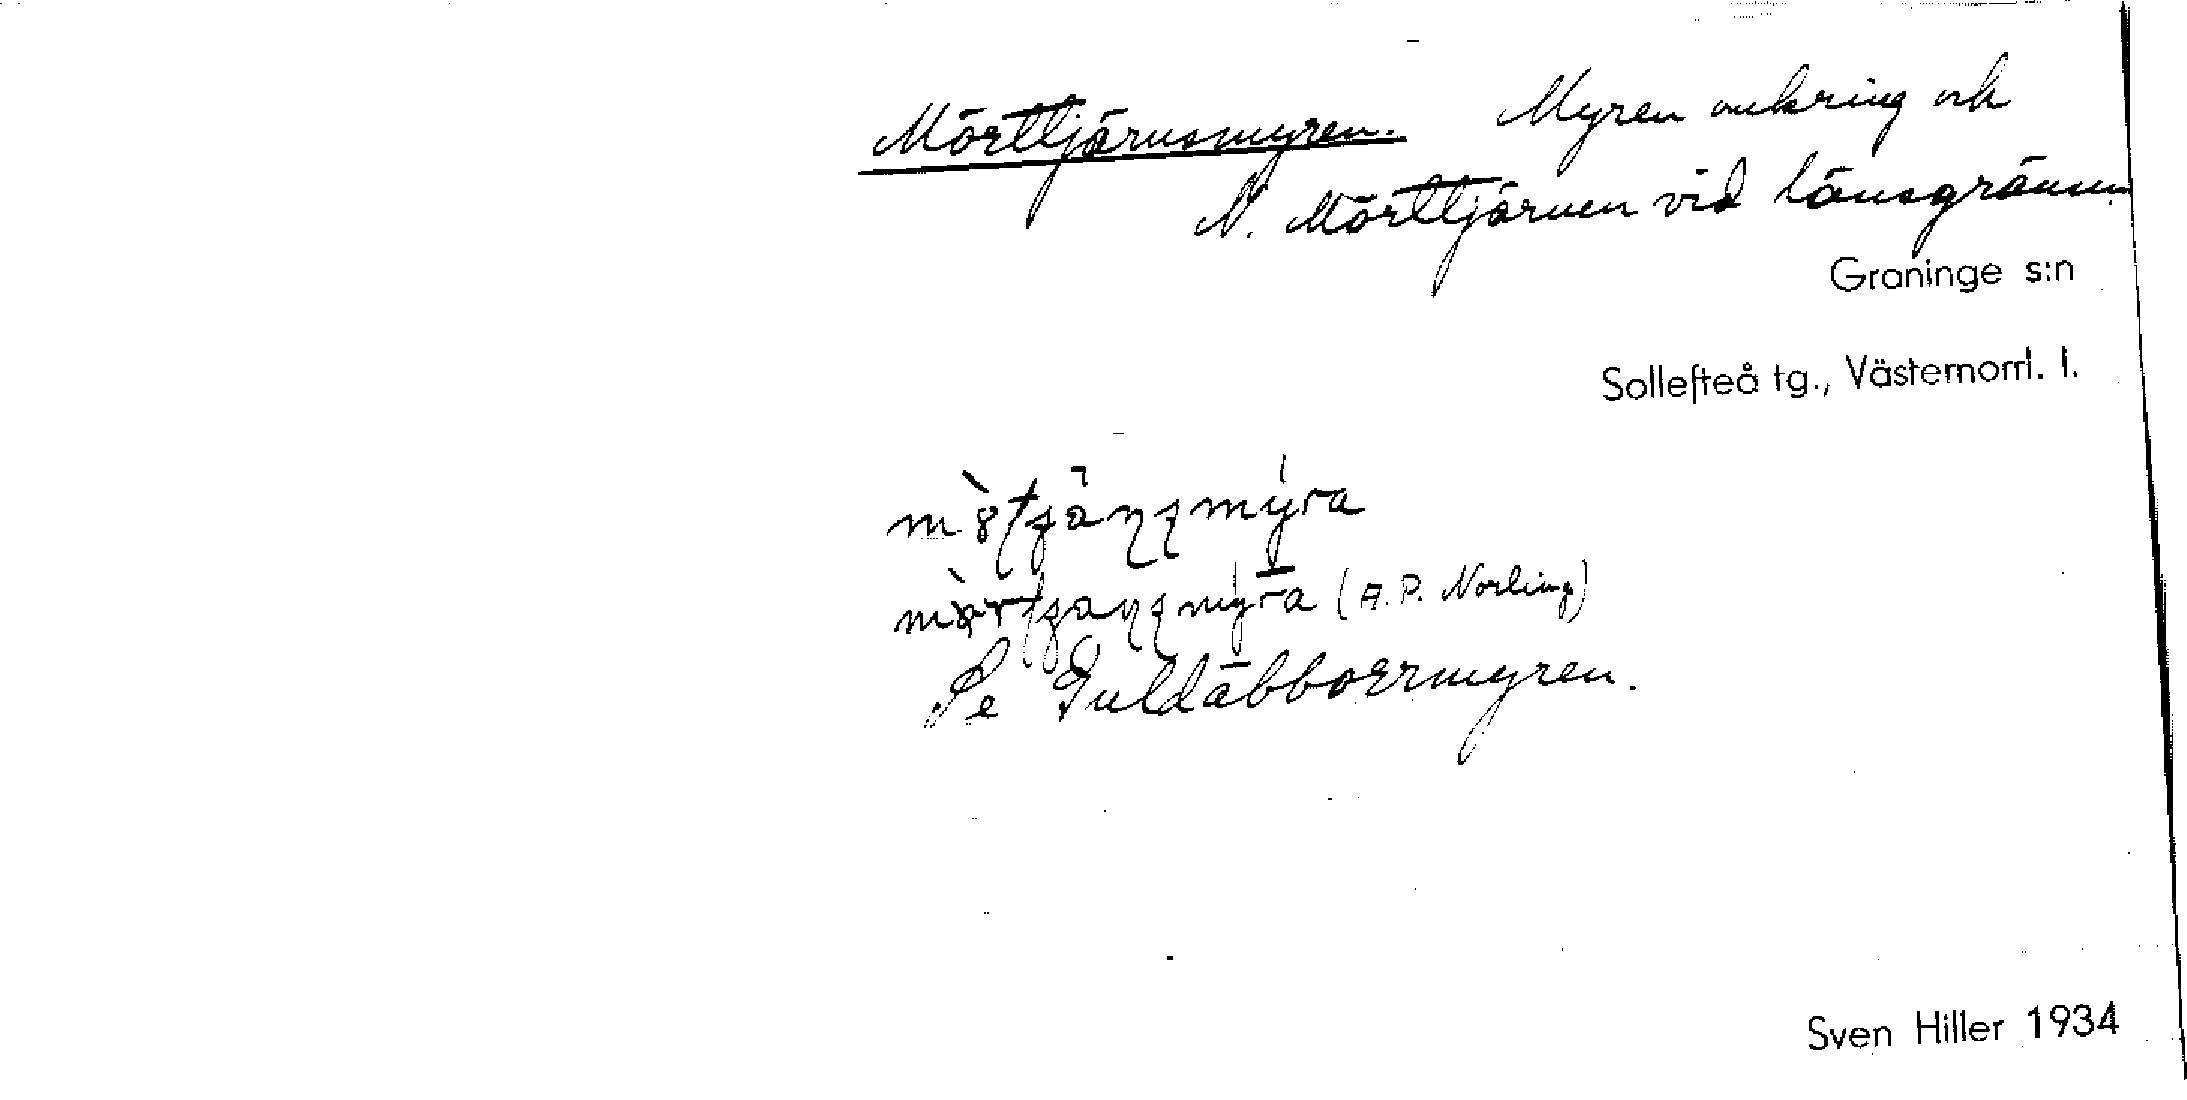 Mörttjärnsmyren. Myren omkring och
N. Mörttjärnen vid länsgränsen.
Graninge s:n
Sollefteå tg., Västernorrl. l.
(A.P. Norling)
Se Guldäbborrmyren.
Sven Hiller 1934